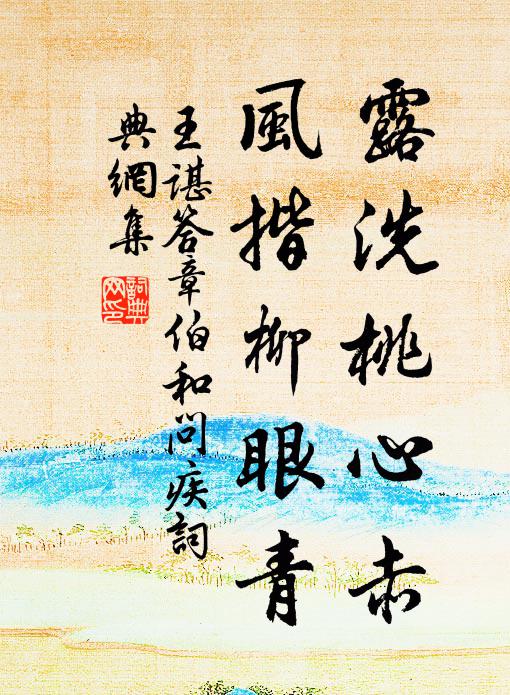 露洗桃心赤
風揩柳眼青
王諶答章伯和問疾詞
典網集
詞典
网印